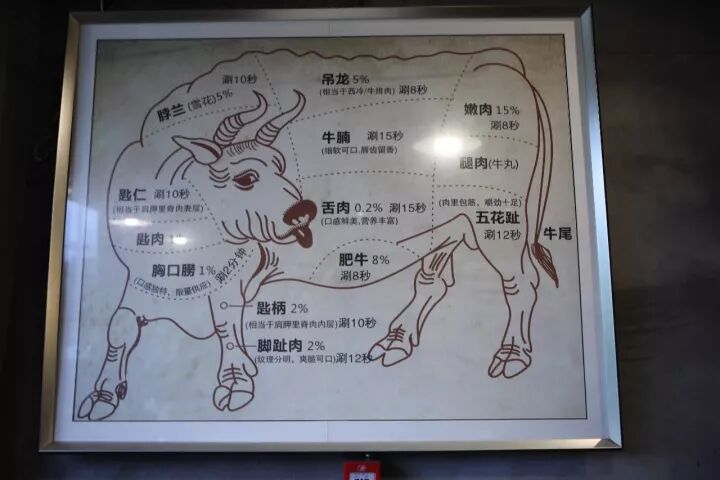 脖兰(雪花)5%
涮10秒
吊龙 5%
(相当于西冷/牛排肉) 涮8秒
嫩肉 15%
涮8秒
牛腩 涮15秒
(细软可口,唇齿留香)
腿肉(牛丸)
匙仁 涮10秒
(相当于肩脾里脊肉表层)
舌肉 0.2% 涮15秒
(口感鲜美,营养丰富)
(肉里包筋，嚼劲十足)
五花趾
涮12秒
牛尾
匙肉
胸口朥 1%
(口感独特，限量供应)
涮2分钟
肥牛 8%
涮8秒
匙柄 2%
(相当于肩脾里脊肉内层)涮10秒
脚趾肉 2%
(纹理分明，爽脆可口)涮12秒